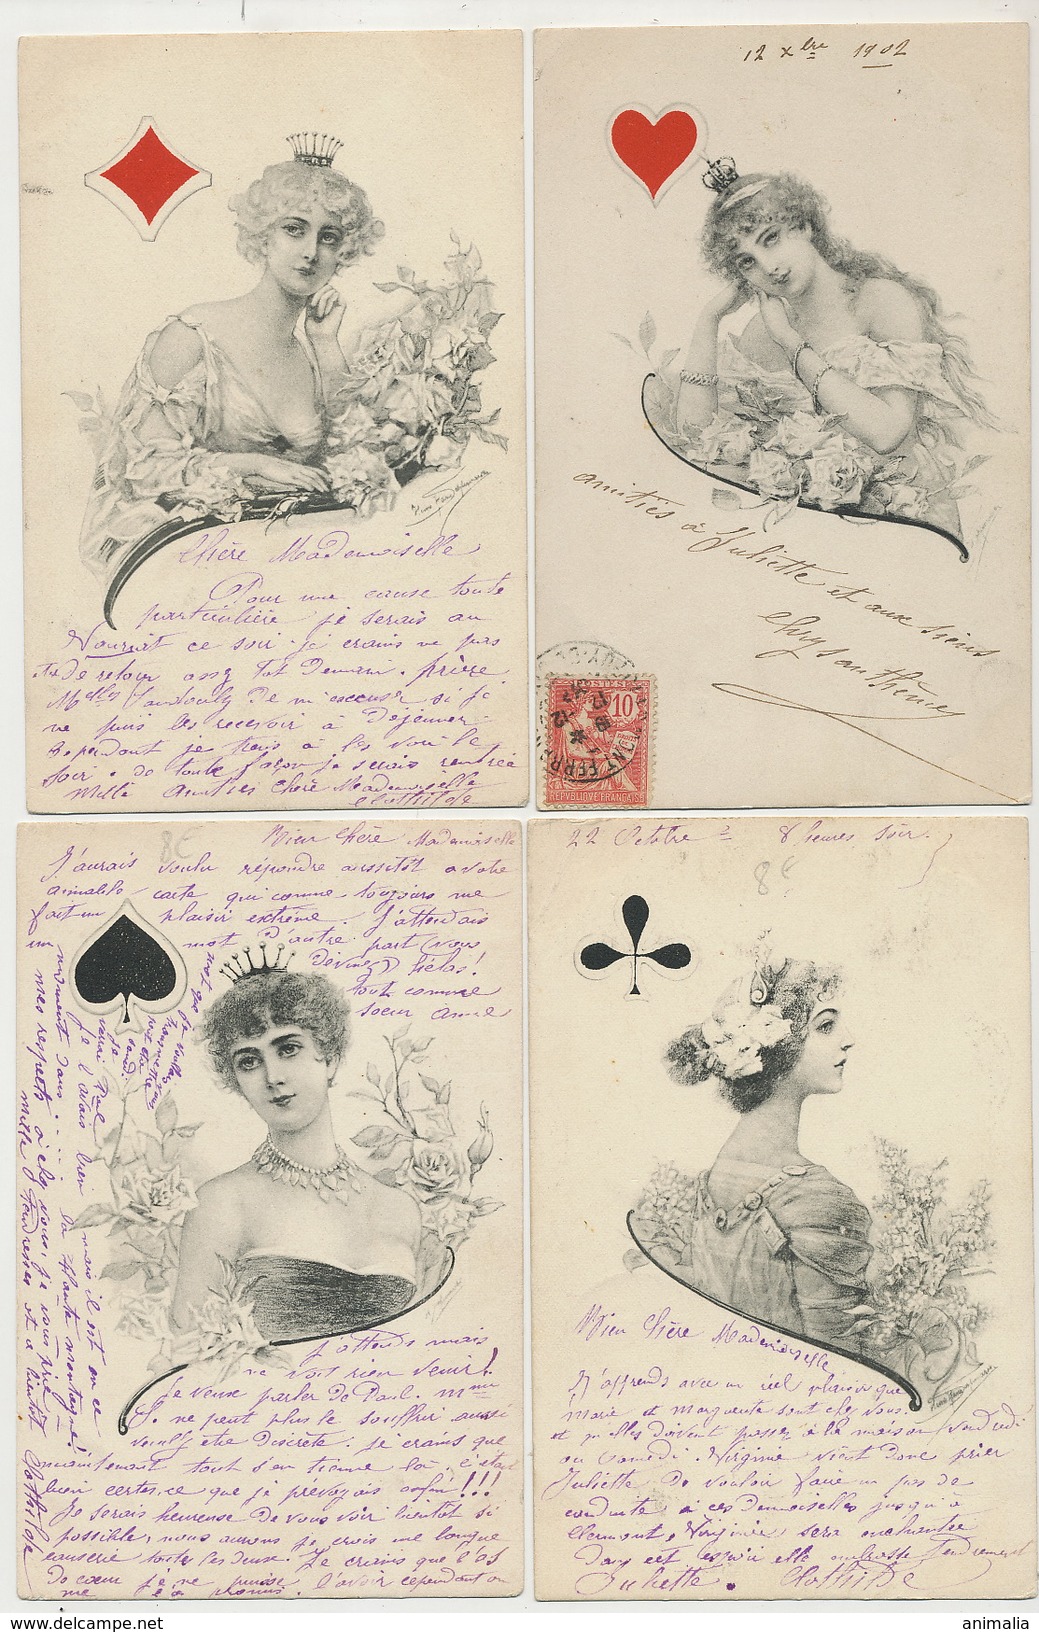 Chère Mademoiselle
Pour une cause toute
particulière je serais au
ce soir. je crains ne pas
de retour assez tôt Demain. prière
Melles De m'excuser si je
ne puis les recevoir à Déjeuner.
Cependant je tiens à les voir le
soir. de toute façon je serais rentrée
Mille Amitiés Chère Mademoiselle
Clothilde
12 Xbre 1902
amitiés à Juliette et aux siens
Chrysanthème
POSTES
10
RÉPUBLIQUE FRANÇAISE
8€
Bien Chère Mademoiselle
J'aurais voulu répondre aussitôt a votre
aimable carte qui comme toujours me
fait un plaisir extrême. J'attendais
un mot d'autre part (vous
devinez) hélas!
tout comme
soeur Anne
j'attends mais
ne voit rien venir!
Je veux parler de Paul.
Je ne peut plus le souffrir aussi
être discrète. je crains que
maintenant tout s'en tienne là. c'était
bien certes, ce que je prévoyais enfin!!!
Je serais heureuse de vous voir bientôt si
possible, nous aurons je crois une longue
causerie toutes les deux. Je crains que l'as
de coeur je ne puisse l'avoir cependant on
me l'a promis.
je l'avais bien mais il est en ce
moment dans .... la Haute montagne!
mes respects à chez vous, je vous prie
Mille tendresses et à bientôt Clothilde
22 Octobre 2 8 heures soir.
8€
Bien Chère Mademoiselle
J'apprends avec un réel plaisir que
Marie et Marguerite sont chez vous.
et qu'elles doivent passer à la maison Vendredi
ou Samedi. Virginie vient donc prier
Juliette de vouloir faire un pas de
conduite à ces Demoiselles jusqu'à
Clermont. Virginie sera enchantée
Dans cet espoir elle embrasse Tendrement
Juliette. Clothilde
delcampe.net
animalia